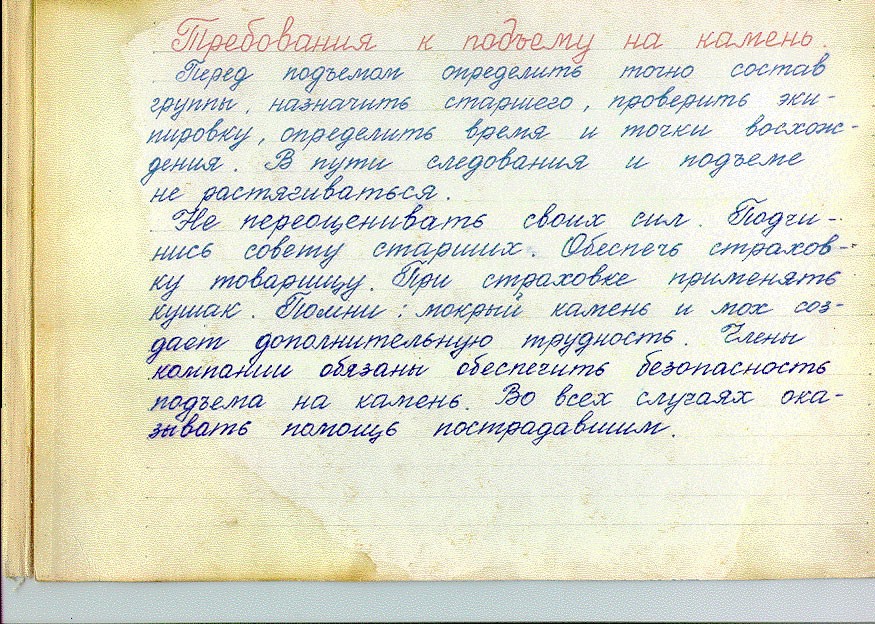 Требования к подъему на камень.
Перед подъемом определить точно состав
группы, назначить старшего, проверить эки-
пировку, определить время и точки восхож-
дения. В пути следования и подъеме
не растягиваться.
Не переоценивать своих сил. Подчи-
нись совету старших. Обеспечь страхов-
ку товарищу. При страховке применять
кушак. Помни: мокрый камень и мох соз-
дает дополнительную трудность. Члены
компании обязаны обеспечить безопасность
подъема на камень. Во всех случаях ока-
зывать помощь пострадавшим.